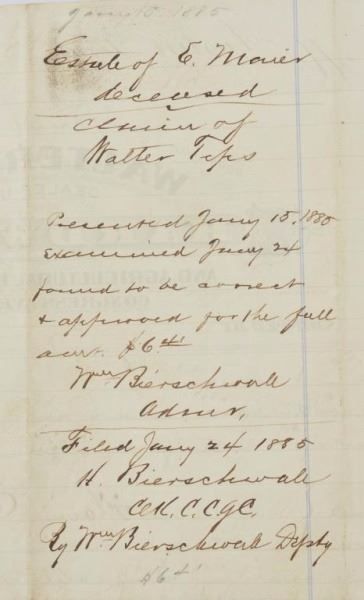 Jany 15, 1885
Estate of E. Maier
deceased
Claim of
Walter Tips
Presented Jany 15, 1885
Examined Jany 24
found to be correct
& approved for the full
amt. $6.41
Wm Bierschwale
Admr,
Filed Jany 24 1885
H. Bierschwale
Clk. C. C. G. C.
By Wm Bierschwale Depty
$6.41